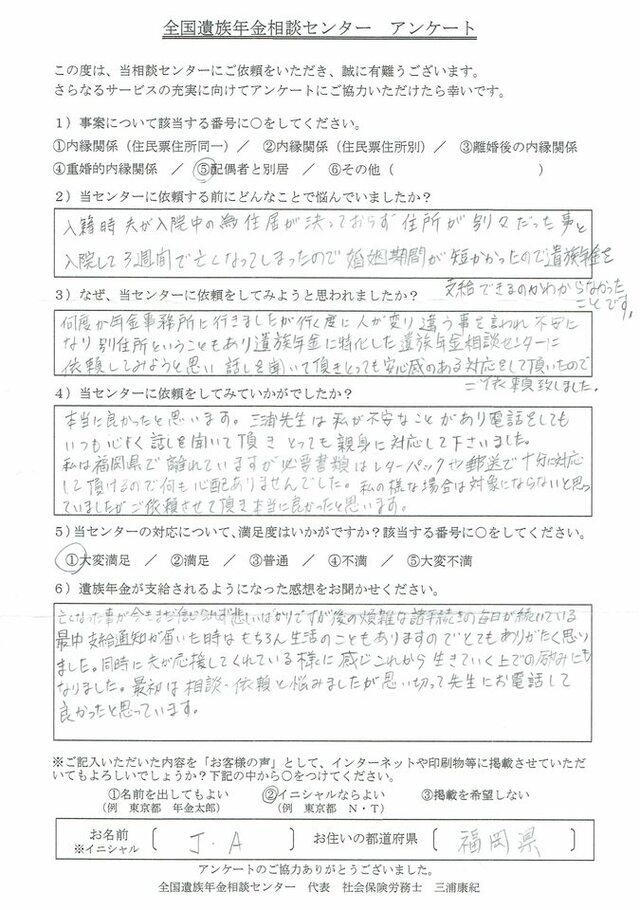 全国遺族年金相談センター　アンケート
この度は、当相談センターにご依頼をいただき、誠に有難うございます。
さらなるサービスの充実に向けてアンケートにご協力いただけたら幸いです。
1）事案について該当する番号に○をしてください。
①内縁関係（住民票住所同一）　／　②内縁関係（住民票住所別）／　③離婚後の内縁関係
④重婚的内縁関係　／　⑤配偶者と別居　／　⑥その他（　　　　　　　　）
2）当センターに依頼する前にどんなことで悩んでいましたか？
入籍時夫が入院中の為住居が決っておらず住所が別々だった事と
入院して3週間で亡くなってしまったので婚姻期間が短かかったので遺族年金を
支給できるのかわからなかった
ことです。
3）なぜ、当センターに依頼をしてみようと思われましたか？
何度か年金事務所に行きましたが行く度に人が変り違う事を言われ不安に
なり別住所ということもあり遺族年金に特化した遺族年金相談センターに
依頼してみようと思い話しを聞いて頂きとっても安心感のある対応をして頂いたので
ご依頼致しました。
4）当センターに依頼をしてみていかがでしたか？
本当に良かったと思います。三浦先生は私が不安なことがあり電話をしても
いつも心よく話しを聞いて頂きとっても親身に対応して下さいました。
私は福岡県で離れていますが必要書類はレターパックや郵送で十分に対応
して頂けるので何も心配ありませんでした。私の様な場合は対象にならないと思っ
ていましたがご依頼させて頂き本当に良かったと思います。
5）当センターの対応について、満足度はいかがですか？該当する番号に○をしてください。
①大変満足　／　②満足　／　③普通　／　④不満　／　⑤大変不満
6）遺族年金が支給されるようになった感想をお聞かせください。
亡くなった事が今もまだ信じられず悲しいばかりですが後の煩雑な諸手続きの毎日が続いている
最中支給通知が届いた時はもちろん生活のこともありますのでとてもありがたく思い
ました。同時に夫が応援してくれている様に感じこれから生きていく上での励みにも
なりました。最初は相談・依頼と悩みましたが思い切って先生にお電話して
良かったと思っています。
※ご記入いただいた内容を「お客様の声」として、インターネットや印刷物等に掲載させていただ
いてもよろしいでしょうか？下記の中から○をつけてください。
①名前を出してもよい　②イニシャルならよい　③掲載を希望しない
（例　東京都　年金太郎）　（例　東京都　N・T）
お名前　〔　J・A　〕　お住いの都道府県　〔　福岡県　〕
※イニシャル
アンケートのご協力ありがとうございました。
全国遺族年金相談センター　代表　社会保険労務士　三浦康紀